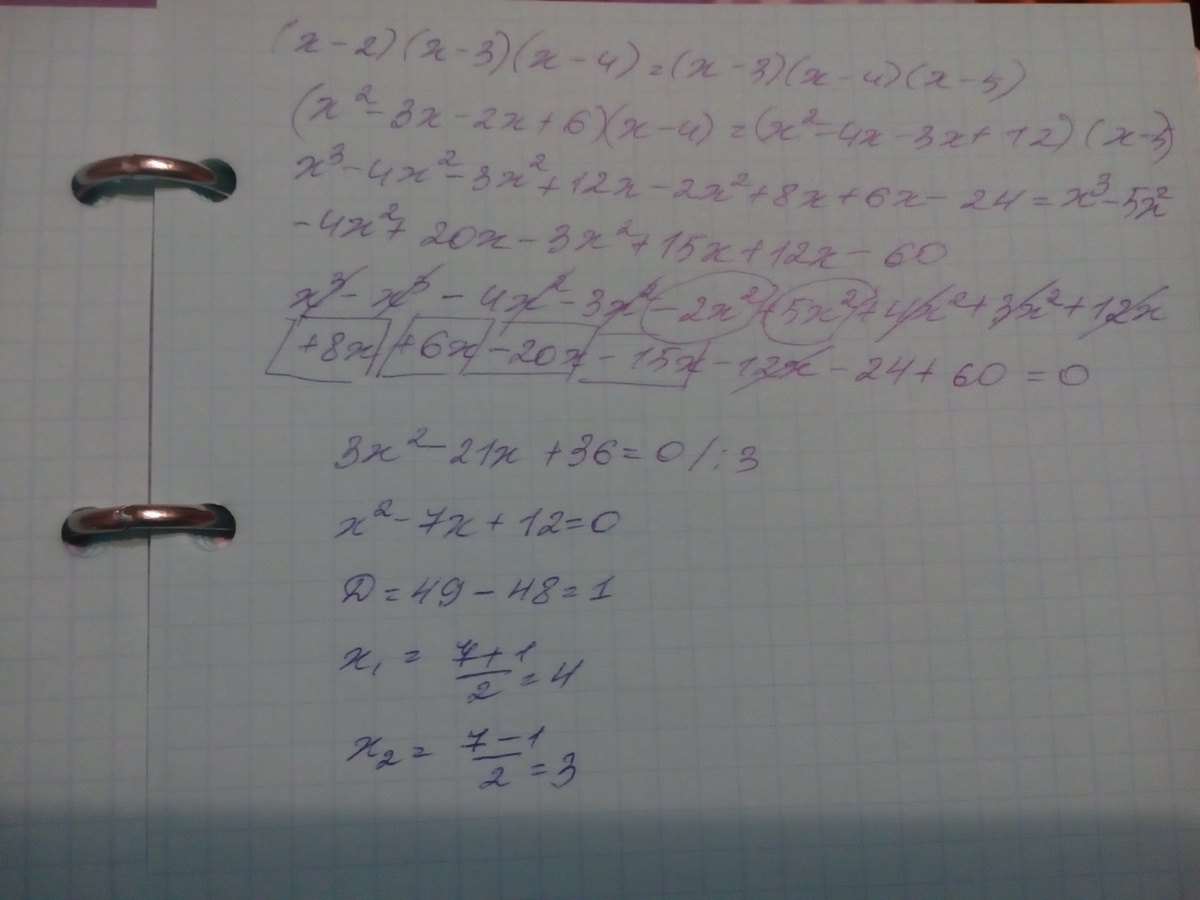 (x-2)(x-3)(x-4)=(x-3)(x-4)(x-5)
(x²-3x-2x+6)(x-4)=(x²-4x-3x+12)(x-5)
x³-4x²-3x²+12x-2x²+8x+6x-24=x³-5x²
-4x²+20x-3x²+15x+12x-60
x³-x³-4x²-3x²-2x²+5x²+4x²+3x²+12x
+8x+6x-20x-15x-12x-24+60=0
3x²-21x+36=0/:3
x²-7x+12=0
Д=49-48=1
x₁=(7+1)/2=4
x₂=(7-1)/2=3